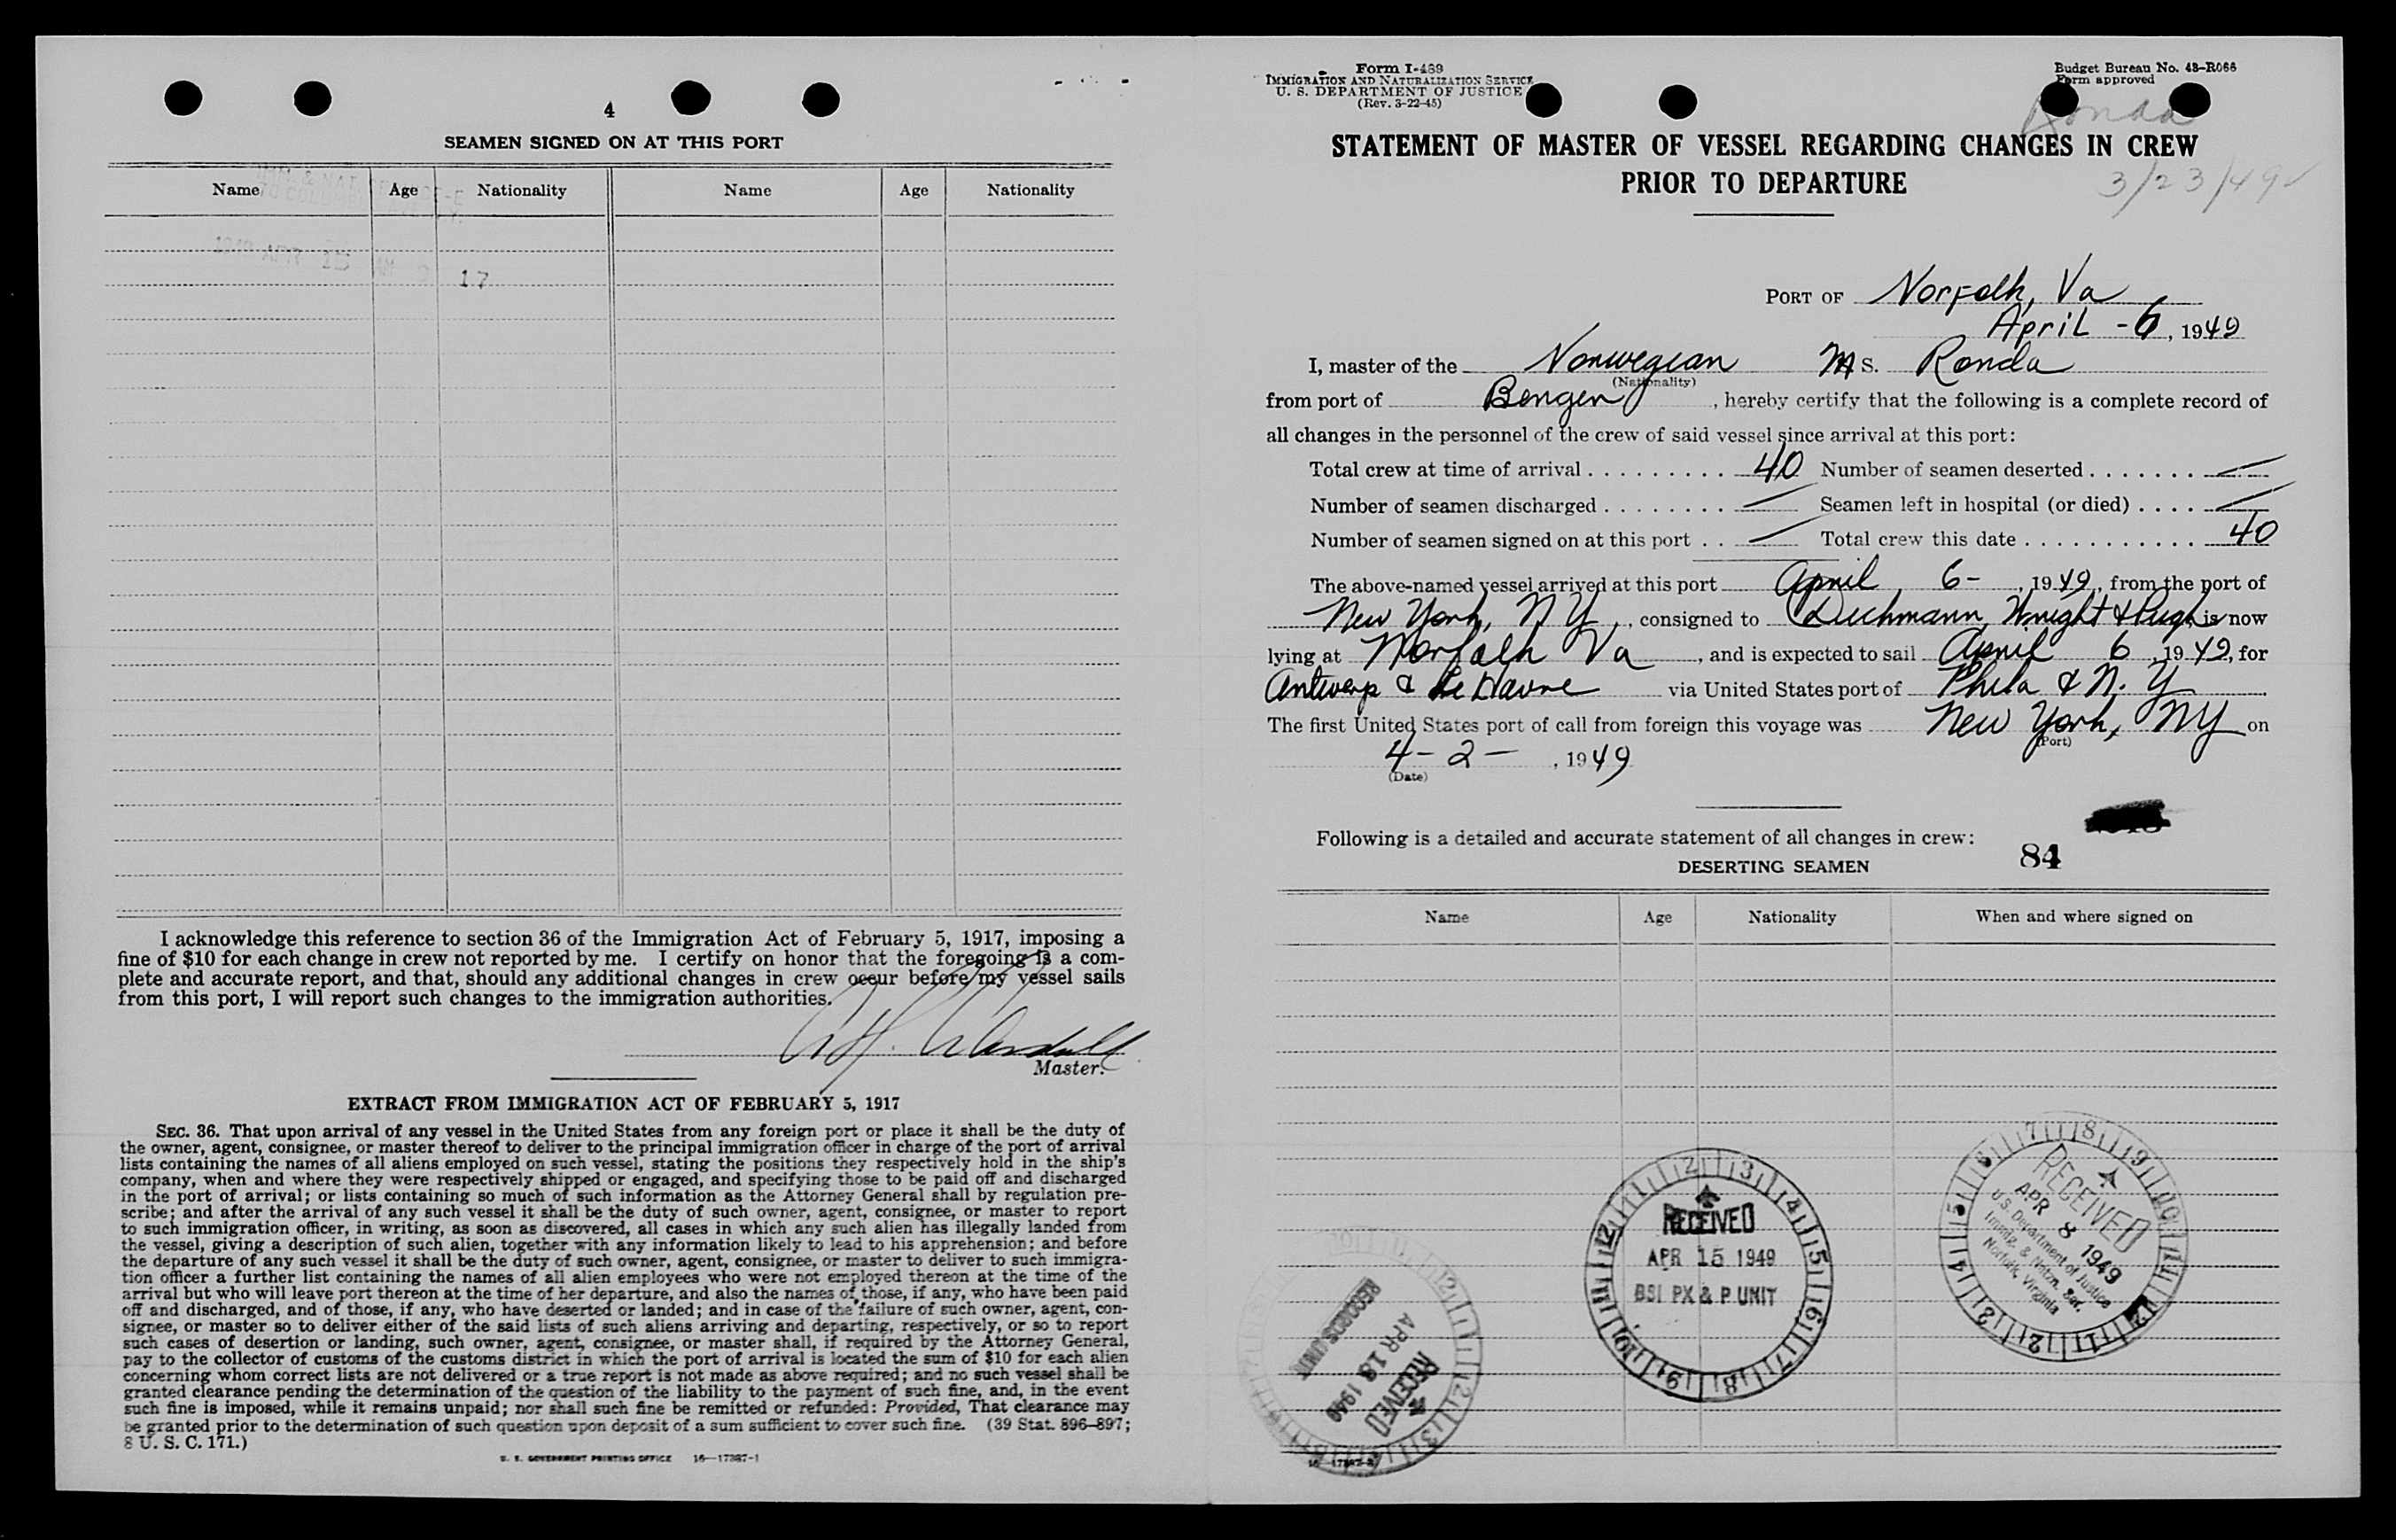 4
SEAMEN SIGNED ON AT THIS PORT
Name Age Nationality Name Age Nationality
APR 15
17
I acknowledge this reference to section 36 of the Immigration Act of February 5, 1917, imposing a
fine of $10 for each change in crew not reported by me. I certify on honor that the foregoing is a com-
plete and accurate report, and that, should any additional changes in crew occur before my vessel sails
from this port, I will report such changes to the immigration authorities.
Master.
EXTRACT FROM IMMIGRATION ACT OF FEBRUARY 5, 1917
SEC. 36. That upon arrival of any vessel in the United States from any foreign port or place it shall be the duty of
the owner, agent, consignee, or master thereof to deliver to the principal immigration officer in charge of the port of arrival
lists containing the names of all aliens employed on such vessel, stating the positions they respectively hold in the ship's
company, when and where they were respectively shipped or engaged, and specifying those to be paid off and discharged
in the port of arrival; or lists containing so much of such information as the Attorney General shall by regulation pre-
scribe; and after the arrival of any such vessel it shall be the duty of such owner, agent, consignee, or master to report
to such immigration officer, in writing, as soon as discovered, all cases in which any such alien has illegally landed from
the vessel, giving a description of such alien, together with any information likely to lead to his apprehension; and before
the departure of any such vessel it shall be the duty of such owner, agent, consignee, or master to deliver to such immigra-
tion officer a further list containing the names of all alien employees who were not employed thereon at the time of the
arrival but who will leave port thereon at the time of her departure, and also the names of those, if any, who have been paid
off and discharged, and of those, if any, who have deserted or landed; and in case of the failure of such owner, agent, con-
signee, or master so to deliver either of the said lists of such aliens arriving and departing, respectively, or so to report
such cases of desertion or landing, such owner, agent, consignee, or master shall, if required by the Attorney General,
pay to the collector of customs of the customs district in which the port of arrival is located the sum of $10 for each alien
concerning whom correct lists are not delivered or a true report is not made as above required; and no such vessel shall be
granted clearance pending the determination of the question of the liability to the payment of such fine, and, in the event
such fine is imposed, while it remains unpaid; nor shall such fine be remitted or refunded: Provided, That clearance may
be granted prior to the determination of such question upon deposit of a sum sufficient to cover such fine. (39 Stat. 896–897;
8 U. S. C. 171.)
U. S. GOVERNMENT PRINTING OFFICE 16—17387-1
Form I-489
IMMIGRATION AND NATURALIZATION SERVICE
U. S. DEPARTMENT OF JUSTICE
(Rev. 3-22-45)
Budget Bureau No. 43-R066
Form approved
Ronda
STATEMENT OF MASTER OF VESSEL REGARDING CHANGES IN CREW
PRIOR TO DEPARTURE
3/23/49
PORT OF Norfolk, Va
April -6, 1949
I, master of the Norwegian MS. Ronda
(Nationality)
from port of Bergen, hereby certify that the following is a complete record of
all changes in the personnel of the crew of said vessel since arrival at this port:
Total crew at time of arrival 40 Number of seamen deserted —
Number of seamen discharged — Seamen left in hospital (or died) —
Number of seamen signed on at this port — Total crew this date 40
The above-named vessel arrived at this port April 6-, 1949, from the port of
New York, NY, consigned to Dichmann, Wright & Pugh, is now
lying at Norfolk Va, and is expected to sail April 6, 1949, for
Antwerp & Le Havre via United States port of Phila & N. Y
The first United States port of call from foreign this voyage was New York, NY on
(Port)
4-2-, 1949
(Date)
Following is a detailed and accurate statement of all changes in crew:
84
DESERTING SEAMEN
Name Age Nationality When and where signed on
RECEIVED
APR 8 1949
U.S. Department of Justice
Immig. & Natzn. Ser.
Norfolk, Virginia
RECEIVED
APR 15 1949
BSI PX & P UNIT
RECORDS UNIT
APR 18 1949
RECEIVED